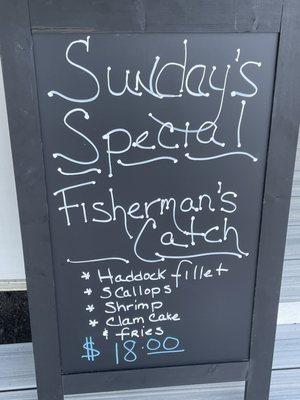 Sunday's
Special
Fisherman's
Catch
* Haddock fillet
* Scallops
* Shrimp
* Clam Cake
& fries
$ 18.00